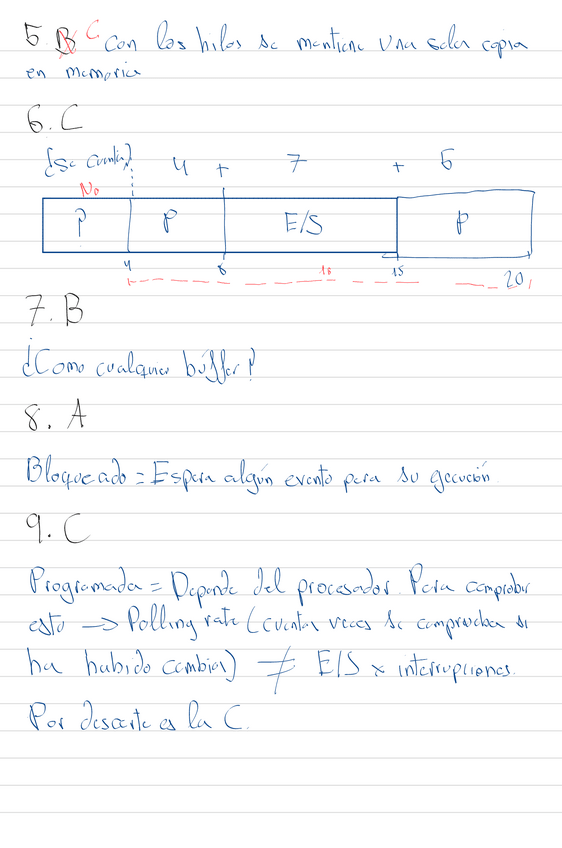 5. B C Con los hilos se mantiene una sola copia
en memoria
6. C
¿Se cuenta? 4 + 7 + 5
No
P P E/S P
4 8 15 20
16
7. B
¿Como cualquier búffer?
8. A
Bloqueado = Espera algún evento para su ejecución.
9. C
Programada = Depende del procesador. Para comprobar
esto → Polling rate (cuentas veces se comprueba si
ha habido cambios) ≠ E/S x interrupciones.
Por descarte es la C.